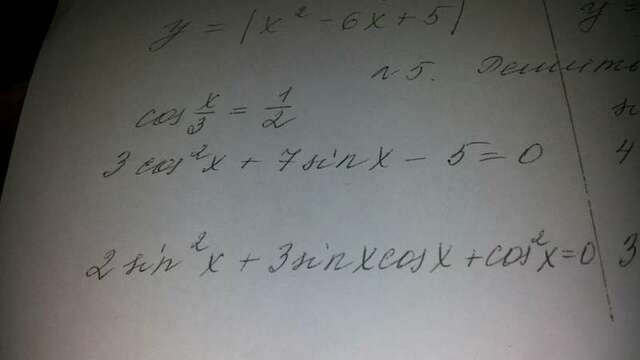 y = |x² - 6x + 5|
y =
№5. Решить
cos x/3 = 1/2
3 cos²x + 7 sin x - 5 = 0
4
2 sin²x + 3 sin x cos x + cos²x = 0
3